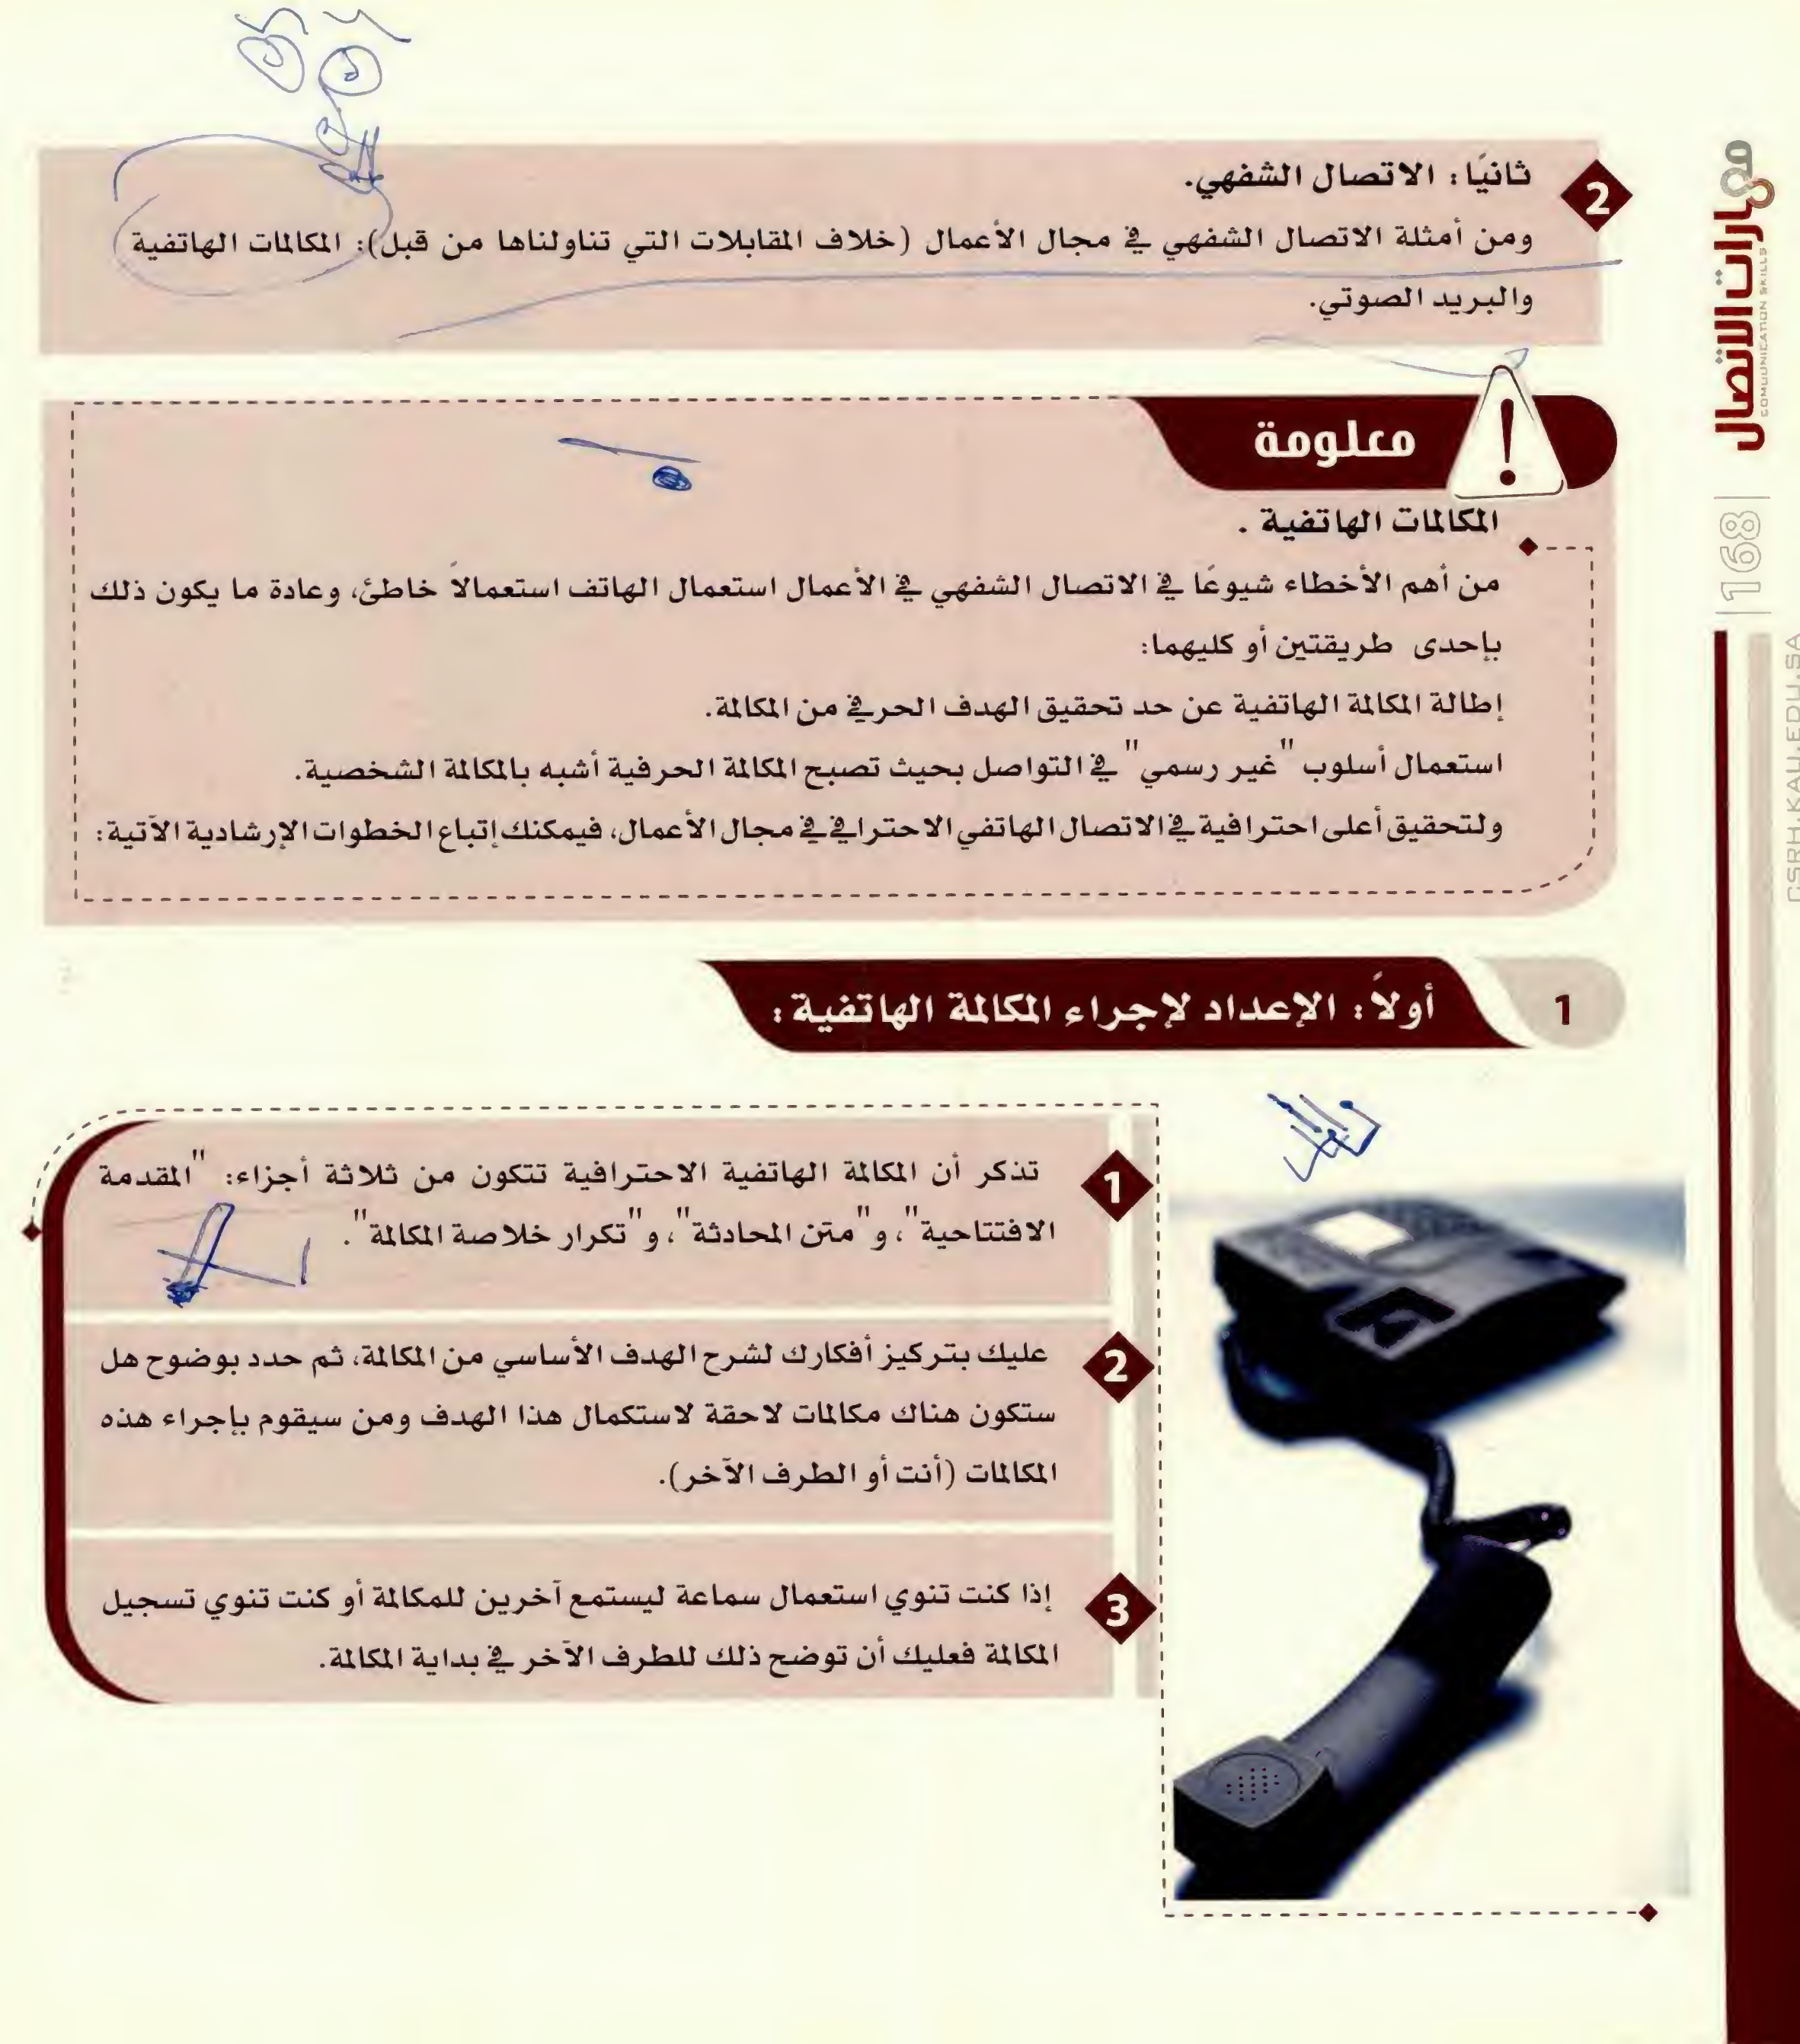 2
ثانيًا: الاتصال الشفهي.
ومن أمثلة الاتصال الشفهي في مجال الأعمال (خلاف المقابلات التي تناولناها من قبل): المكالمات الهاتفية
والبريد الصوتي.
معلومة
المكالمات الهاتفية .
من أهم الأخطاء شيوعًا في الاتصال الشفهي في الأعمال استعمال الهاتف استعمالاً خاطئ، وعادة ما يكون ذلك
بإحدى طريقتين أو كليهما:
إطالة المكالمة الهاتفية عن حد تحقيق الهدف الحرفي من المكالمة.
استعمال أسلوب "غير رسمي" في التواصل بحيث تصبح المكالمة الحرفية أشبه بالمكالمة الشخصية.
ولتحقيق أعلى احترافية في الاتصال الهاتفي الاحترافي في مجال الأعمال، فيمكنك إتباع الخطوات الإرشادية الآتية:
1
أولاً: الإعداد لإجراء المكالمة الهاتفية:
1
تذكر أن المكالمة الهاتفية الاحترافية تتكون من ثلاثة أجزاء: "المقدمة
الافتتاحية"، و"متن المحادثة"، و"تكرار خلاصة المكالمة".
2
عليك بتركيز أفكارك لشرح الهدف الأساسي من المكالمة، ثم حدد بوضوح هل
ستكون هناك مكالمات لاحقة لاستكمال هذا الهدف ومن سيقوم بإجراء هذه
المكالمات (أنت أو الطرف الآخر).
3
إذا كنت تنوي استعمال سماعة ليستمع آخرين للمكالمة أو كنت تنوي تسجيل
المكالمة فعليك أن توضح ذلك للطرف الآخر في بداية المكالمة.
مهارات الاتصال
COMMUNICATION SKILLS
168
CSRH.KAU.EDU.SA